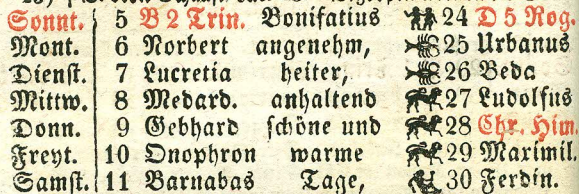 Sonnt. 5 B 2 Trin. Bonifatius 24 D 5 Rog.
Mont. 6 Norbert angenehm, 25 Urbanus
Dienst. 7 Lucretia heiter, 26 Beda
Mittw. 8 Medard. anhaltend 27 Ludolfus
Donn. 9 Gebhard schöne und 28 Chr. Him.
Freyt. 10 Onophron warme 29 Maximil.
Samst. 11 Barnabas Tage, 30 Ferdin.